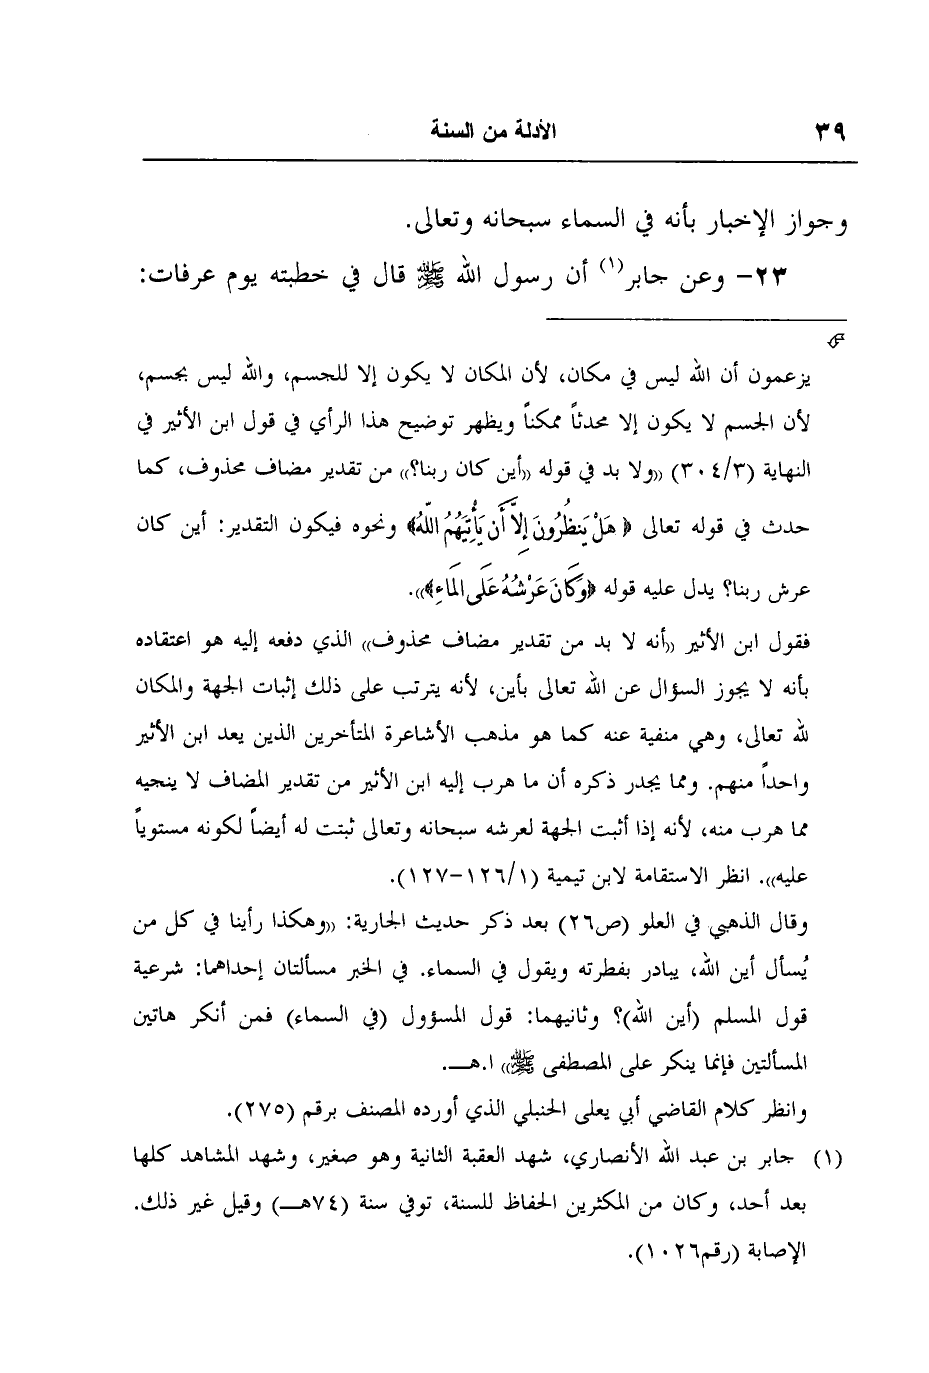 ٣٩ الأدلة من السنة
وجواز الإخبار بأنه في السماء سبحانه وتعالى.
٢٣- وعن جابر(١) أن رسول الله ﷺ قال في خطبته يوم عرفات:
يزعمون أن الله ليس في مكان، لأن المكان لا يكون إلا للجسم، والله ليس بجسم،
لأن الجسم لا يكون إلا محدثاً ممكناً ويظهر توضيح هذا الرأي في قول ابن الأثير في
النهاية (٣٠٤/٣) «ولا بد في قوله «أين كان ربنا؟» من تقدير مضاف محذوف، كما
حدث في قوله تعالى ﴿هَلْ يَنظُرُونَ إِلَّا أَن يَأْتِيَهُمُ اللَّهُ﴾ ونحوه فيكون التقدير: أين كان
عرش ربنا؟ يدل عليه قوله ﴿وَكَانَ عَرْشُهُ عَلَى المَاءِ﴾».
فقول ابن الأثير «أنه لا بد من تقدير مضاف محذوف» الذي دفعه إليه هو اعتقاده
بأنه لا يجوز السؤال عن الله تعالى بأين، لأنه يترتب على ذلك إثبات الجهة والمكان
لله تعالى، وهي منفية عنه كما هو مذهب الأشاعرة المتأخرين الذين يعد ابن الأثير
واحداً منهم. ومما يجدر ذكره أن ما هرب إليه ابن الأثير من تقدير المضاف لا ينجيه
مما هرب منه، لأنه إذا أثبت الجهة لعرشه سبحانه وتعالى ثبتت له أيضاً لكونه مستوياً
عليه». انظر الاستقامة لابن تيمية (١٢٦/١-١٢٧).
وقال الذهبي في العلو (ص٢٦) بعد ذكر حديث الجارية: «وهكذا رأينا في كل من
يُسأل أين الله، يبادر بفطرته ويقول في السماء. في الخبر مسألتان إحداهما: شرعية
قول المسلم (أين الله)؟ وثانيهما: قول المسؤول (في السماء) فمن أنكر هاتين
المسألتين فإنما ينكر على المصطفى ﷺ» ا.هـ.
وانظر كلام القاضي أبي يعلى الحنبلي الذي أورده المصنف برقم (٢٧٥).
(١) جابر بن عبد الله الأنصاري، شهد العقبة الثانية وهو صغير، وشهد المشاهد كلها
بعد أحد، وكان من المكثرين الحفاظ للسنة، توفي سنة (٧٤هـ) وقيل غير ذلك.
الإصابة (رقم١٠٢٦).